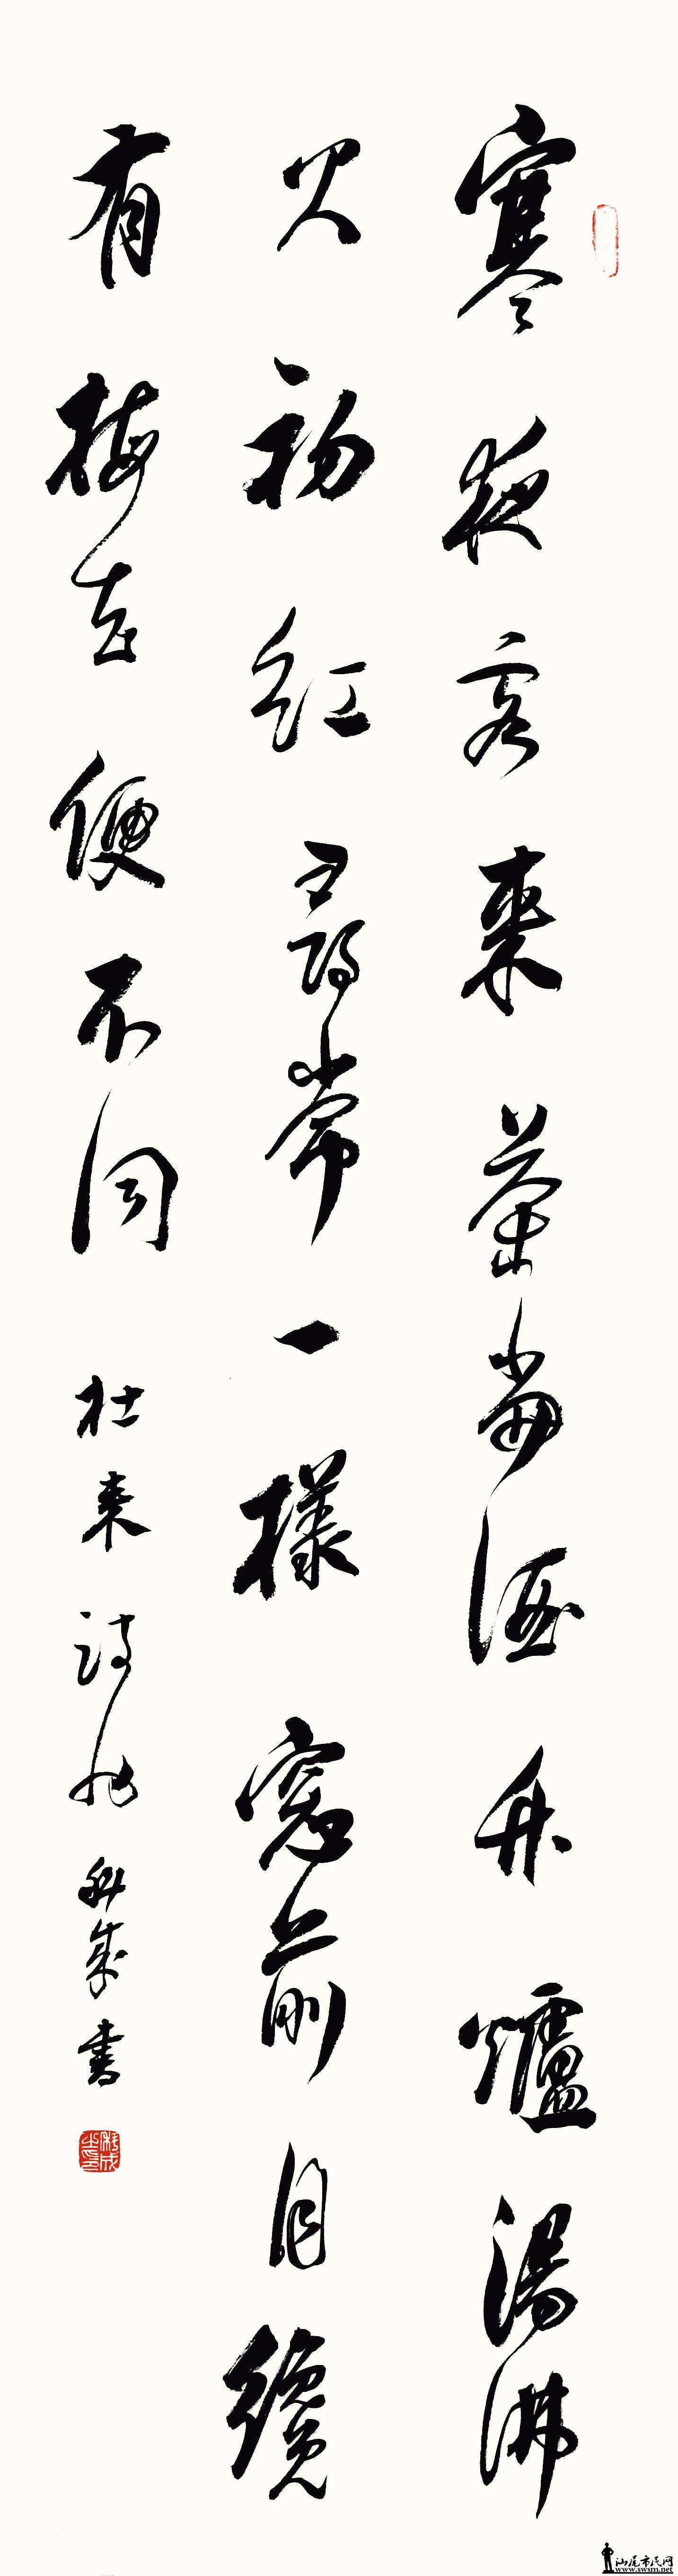 寒夜客來茶當酒竹爐湯沸
火初紅尋常一樣窗前月纔
有梅花便不同 杜耒詩 成書
汕尾市民网
www.swsm.net